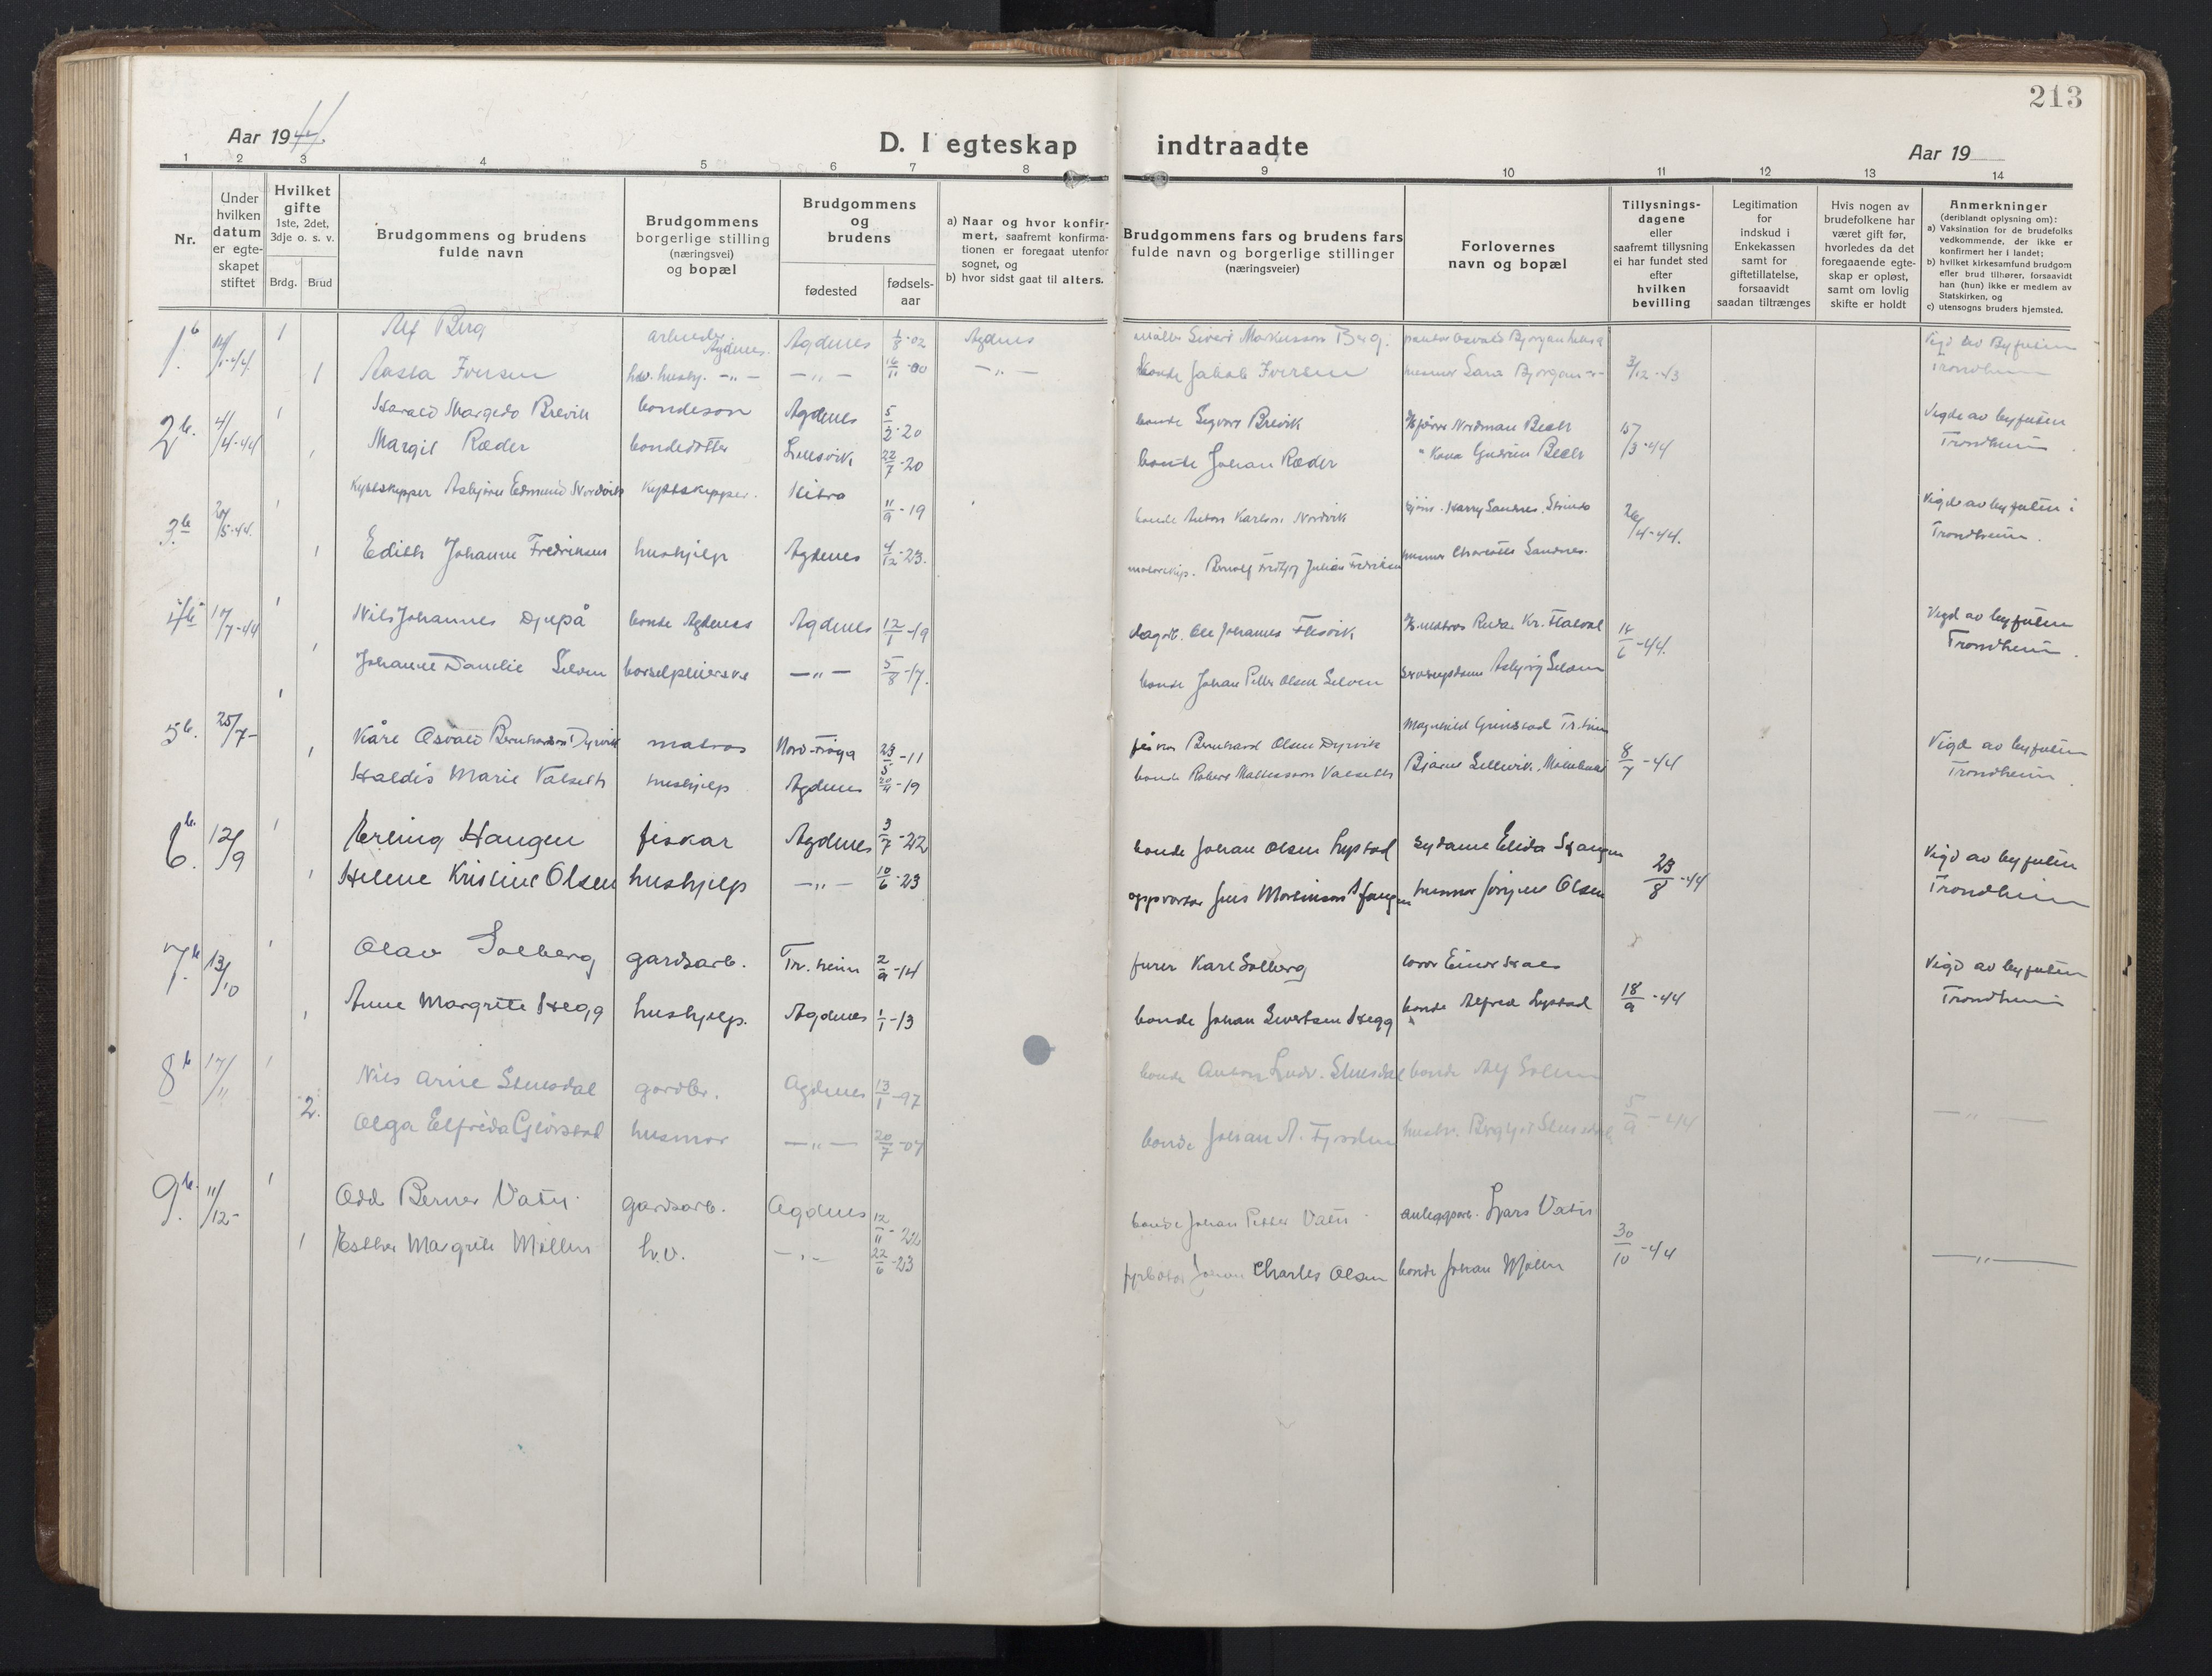 213
Aar 1944.
D. I egteskap indtraadte
Aar 19
1 2 3 4 5 6 7 8 9 10 11 12 13 14
Nr.
Under hvilken datum er egte-skapet stiftet
Hvilket gifte 1ste, 2det, 3dje o. s. v.
Brdg. Brud
Brudgommens og brudens fulde navn
Brudgommens borgerlige stilling (næringsvei) og bopæl
Brudgommens og brudens
fødested
fødsels-aar
a) Naar og hvor konfir-mert, saafremt konfirma-tionen er foregaat utenfor sognet, og
b) hvor sidst gaat til alters.
Brudgommens fars og brudens fars fulde navn og borgerlige stillinger (næringsveier)
Forlovernes navn og bopæl
Tillysnings-dagene eller saafremt tillysning ei har fundet sted efter hvilken bevilling
Legitimation for indskud i Enkekassen samt for giftetillatelse, forsaavidt saadan tiltrænges
Hvis nogen av brudefolkene har været gift før, hvorledes da det foregaaende egte-skap er opløst, samt om lovlig skifte er holdt
Anmerkninger
(deriblandt oplysning om):
a) Vaksination for de brudefolks vedkommende, der ikke er konfirmert her i landet;
b) hvilket kirkesamfund brudgom eller brud tilhører, forsaavidt han (hun) ikke er medlem av Statskirken, og
c) utensogns bruders hjemsted.
1. 1 Alf Berg arbeider Agdenes. Agdenes 1/8-02 Agdenes Sivert Markusson Berg. Vigd av Byfuten
1 Aasta Iversen hushj. -"- -"- 16/11-00 -"- bonde Jakob Iversen husmor Sara Bjørgan 3/12-43 Trondheim
2. 4/4-44 1 Harald Brevik bondeson Agdenes 5/2-20 bonde Sigvart Brevik Nordman Bech 15/3-44 Vigde av byfuten
1 Margit Ræder bondedotter Lensvik 22/7-20 bonde Johan Ræder Gudrun Bech Trondheim
3. 20/5-44. 1 Kystskipper Asbjørn Edmund Nordvik Kystskipper. Hitra 11/9-19 bonde Anton Karlsen Nordvik Harry Sandnes. 26/4-44. Vigde av byfuten i
1 Edith Johanne Fredriksen hushjelp Agdenes 4/12-23. Julius Fredriksen husmor Charlotte Sandnes. Trondheim.
4. 17/7-44 1 Nils Johannes Djupå bonde Agdenes Agdenes 12/1-19 Ole Johannes Flesvik Kr. 15/6-44. Vigd av byfuten
1 Johanne Danelie Selven barselpleierske -"- 5/8-17. bonde Johan Petter Olsen Selven Asbjørg Selven Trondheim.
5. 25/7- 1 Kåre Osvald Dyrvik matros Nord-Frøya 23/5-11 fisker Bernhard Olsen Dyrvik Magnhild Grinstad Tr.heim 8/7-44 Vigd av byfuten
1 Haldis Marie Valseth hushjelp Agdenes 20/4-19 bonde Robert Valseth Bjarne Trondheim
6. 12/9 1 Erling Haugen fiskar Agdenes 3/7-22 bonde Johan Olsen Lystad sydame Elida 23/8-44 Vigd av byfuten
1 Helene Kristine Olsen hushjelp -"- 10/6-23 Jens husmor Jørgine Olsen Trondheim
7. 13/10 1 Olav Solberg gardsarb. Tr.heim 2/9-14 furer Karl Solberg Einar 18/9-44 Vigd av byfuten
1 Anne Margrete Hegg hushjelp. Agdenes 1/1-13 bonde Johan Sivertsen Hegg bonde Alfred Lystad Trondheim
8 17/11 1 Nils Arne Stuesdal gardbr. Agdenes 13/1-97 bonde Anton Ludv. Stuesdal bonde Alf Solem 5/9-44 -"-
2. Olga Elfrida husmor -"- 20/7-07 bonde Johan A.
9. 11/12- 1 Odd Berner Vatn gardsarb. Agdenes 12/11-22 bonde Johan Petter Vatn anleggsarb. Lars Vatn 30/10-44 -"-
1 Esther Margrete Møllen h.v. -"- 22/6-23 fyrbøter Johan Charles Olsen bonde Johan Mølen